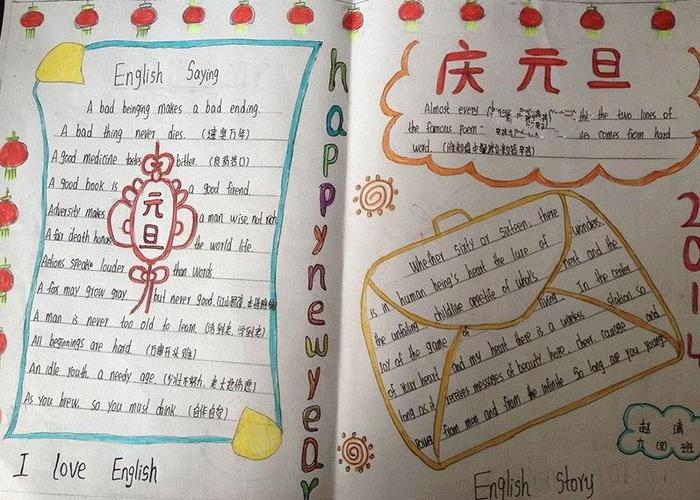 English Saying
A bad beinging makes a bad ending.
A bad thing never dies. (遗臭万年)
A good medicine tastes bitter. (良药苦口)
A good book is a good firend.
Adversity makes a man wise not rich
A fair death honors the world life.
Actions speak louder than words
A fox may grow gray, but never good.
A man is never too old to learn. (活到老, 学到老)
All beginnings are hard. (万事开头难)
An idle youth, a needy age. (少壮不努力, 老大徒伤悲)
As you brew, so you must drink. (自作自受)
元
旦
I love English
happynewyear
庆元旦
Almost every the two lines of
the famous poem comes from hard
word.
2014
Whether sixty or sixteen, there
is in human being's heart the lure of wonders.
the unfailing childlike appetite of what's next and the
joy of the game of living. In the center
of your heart and my heart there is a wireless station so
long as it receives messages of beauty hope, cheer, courage and
power from men and from the infinite so long are you young.
赵倩
九(8)班
English story